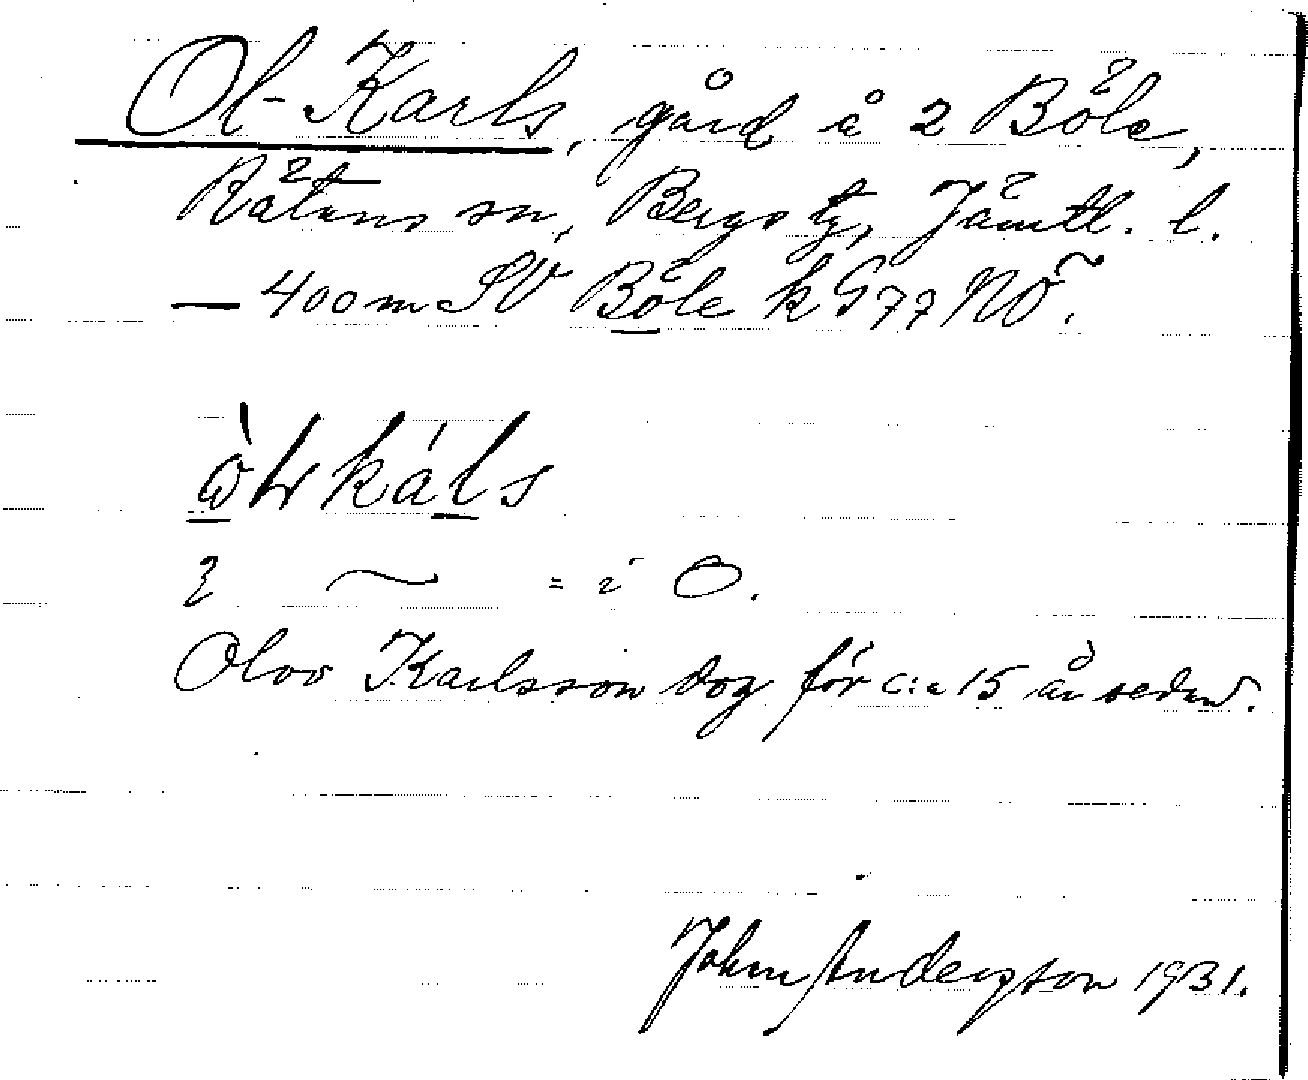 Ol-Karls, gård å 2 Böle,
Rätans sn, Bergs tg, Jämtl. l.
— 400 m SV Böle k G77 NÖ.
òlkáls
~ = i O.
Olov Karlsson dog för c:a 15 år sedan.
John Andersson 1931.